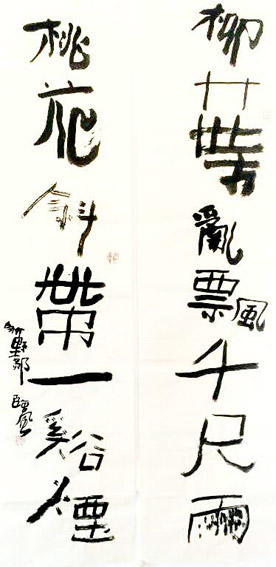 柳亂飄千尺雨
桃花斜帶一谿煙